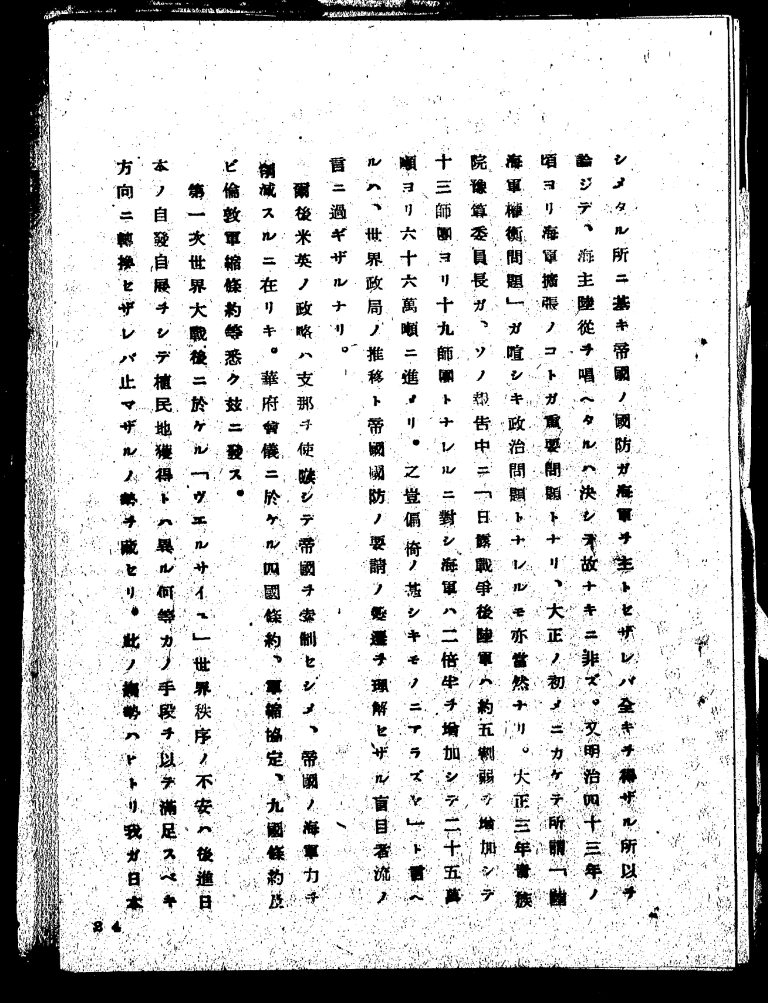 シメタル所ニ基キ帝國ノ國防ガ海軍ヲ主トセザレバ全キヲ得ザル所以ヲ
論ジテ、海主陸從ヲ唱ヘタルハ決シテ故ナキニ非ズ。又明治四十三年ノ
頃ヨリ海軍擴張ノコトガ重要問題トナリ、大正ノ初メニカケテ所謂「陸
海軍權衡問題」ガ喧シキ政治問題トナレルモ亦當然ナリ。大正三年貴族
院豫算委員長ガ、ソノ報告中ニ「日露戰爭後陸軍ハ約五割弱ヲ增加シテ
十三師團ヨリ十九師團トナレルニ對シ海軍ハ二倍半ヲ增加シテ二十五萬
噸ヨリ六十六萬噸ニ進メリ。之豈偏倚ノ甚シキモノニアラズヤ」ト言ヘ
ルハ、世界政局ノ推移ト帝國國防ノ要請ノ變遷ヲ理解セザル盲目者流ノ
言ニ過ギザルナリ。
爾後米英ノ政略ハ支那ヲ使嗾シテ帝國ヲ牽制セシメ、帝國ノ海軍力ヲ
削減スルニ在リキ。華府會儀ニ於ケル四國條約、軍縮協定、九國條約及
ビ倫敦軍縮條約等悉ク玆ニ發ス。
第一次世界大戰後ニ於ケル「ヴエルサイユ」世界秩序ノ不安ハ後進日
本ノ自發自展ヲシテ植民地獲得トハ異ル何等カノ手段ヲ以テ滿足スベキ
方向ニ轉換セザレバ止マザルノ勢ヲ藏セリ。此ノ趨勢ハヒトリ我ガ日本
24